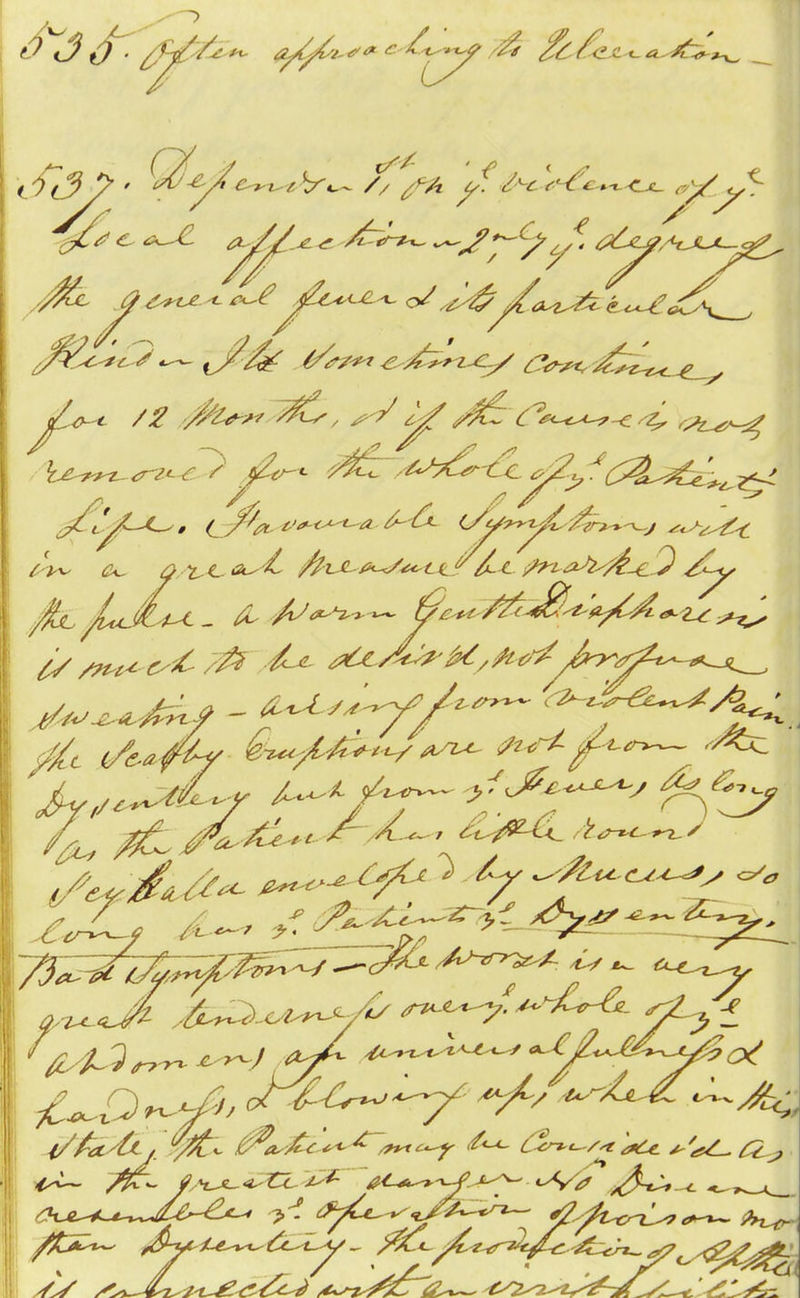 535. Often approaching to Ulceration —
537. Depends — 1st on ye. violence of ye
Local affection — 2ndly ye. degree of
the general fever & its particular
Kind — It sometimes continues
for 12 Months, & if the Cause is not
removed for the whole of ye. Patients
Life. Favourable Symptoms will
in a great Measure be marked by
the pulse - a Warm Gentle Diaphoresis
is much to be desir'd, not profuse
sweating - arising from violent Pain.
the Scabby Eruptions are not from the
Dysentery but from ye. Fever, As long
as the Patient has little round
Scyballa envelop'd by Mucus, so
long has ye. Patient ye. Dysentery.
Bad Symptoms — The worst is a very
great tenderness over ye. whole of ye
Abdomen, an universal fulness &
hardness, & blowing up, when in this
state, the Patient may be Consider'd As
in the greatest danger No Disease
resembles ye. operation of poison mo
than Dysentery - The production of Apthæ
is connected with an